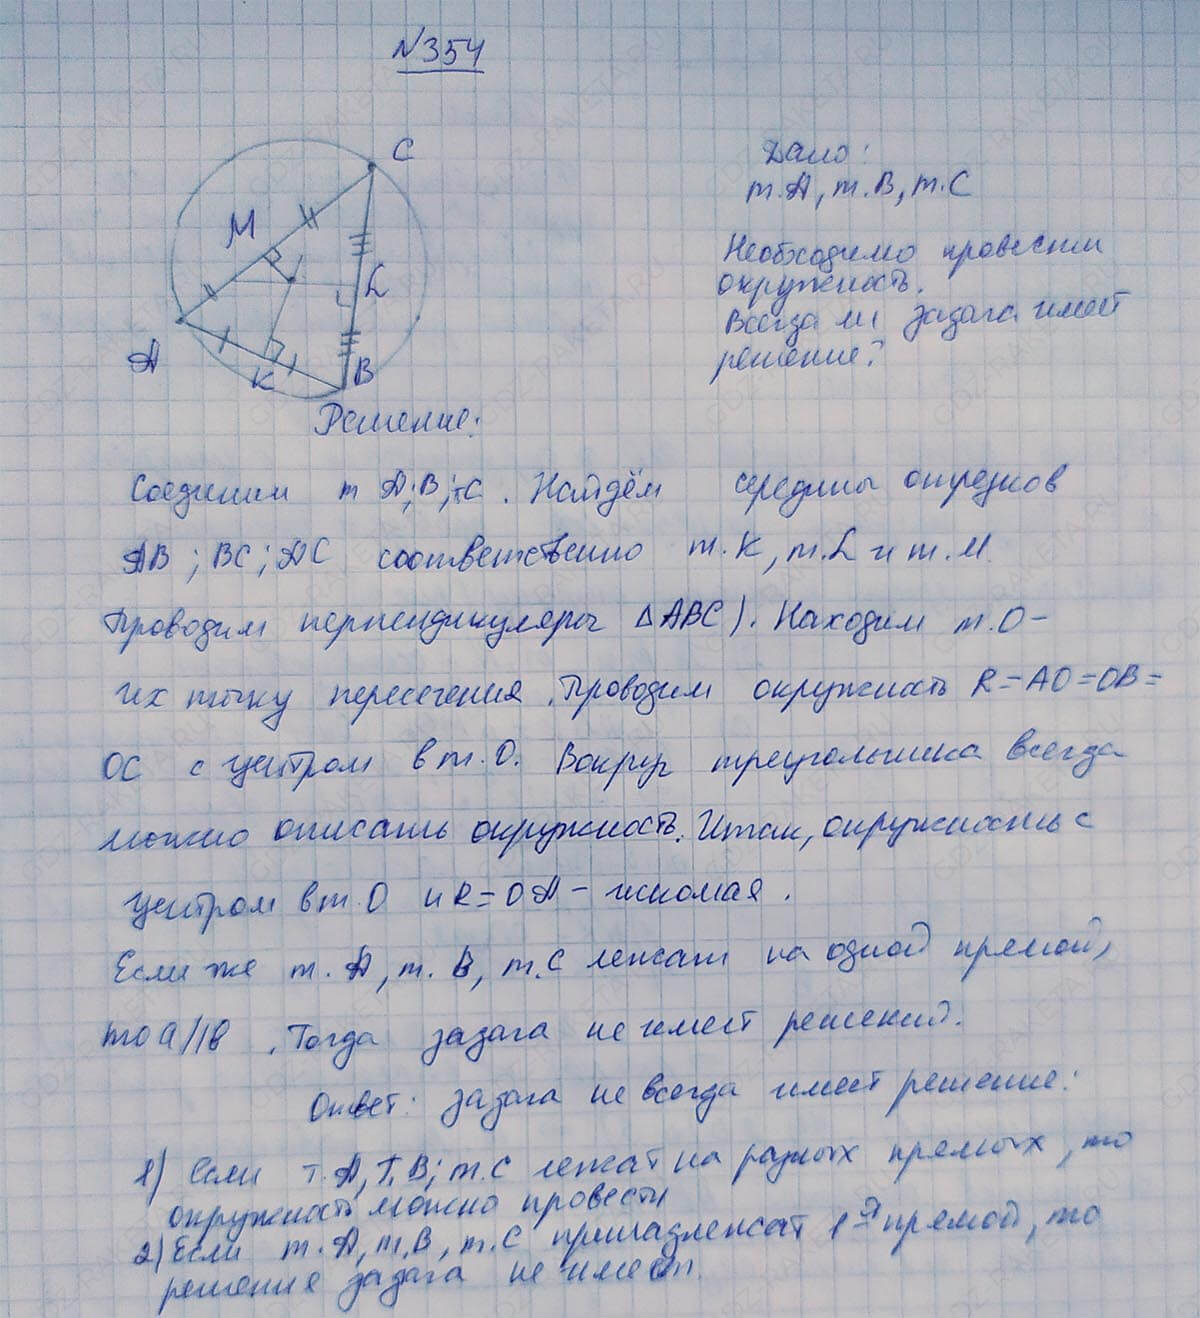 №354
C
M
L
A
K
B
Дано:
т.A, т.B, т.C
Необходимо провести
окружность.
Всегда ли задача имеет
решение?
Решение:
Соединим т A; B; тC. Найдём середины отрезков
AB; BC; AC соответственно т.K, т.L и т.M.
Проводим перпендикуляры ΔABC). Находим т.O-
их точку пересечения. Проводим окружность R=AO=OB=
OC с центром в т.O. Вокруг треугольника всегда
можно описать окружность. Итак, окружность с
центром в т.O и R=OA - искомая.
Если же т.A, т.B, т.C лежат на одной прямой,
то a//b. Тогда задача не имеет решений.
Ответ: задача не всегда имеет решение:
1) Если т.A, т.B; т.C лежат на разных прямых, то
окружность можно провести
2) Если т.A, т.B, т.C принадлежат 1-ой прямой, то
решение задача не имеет.